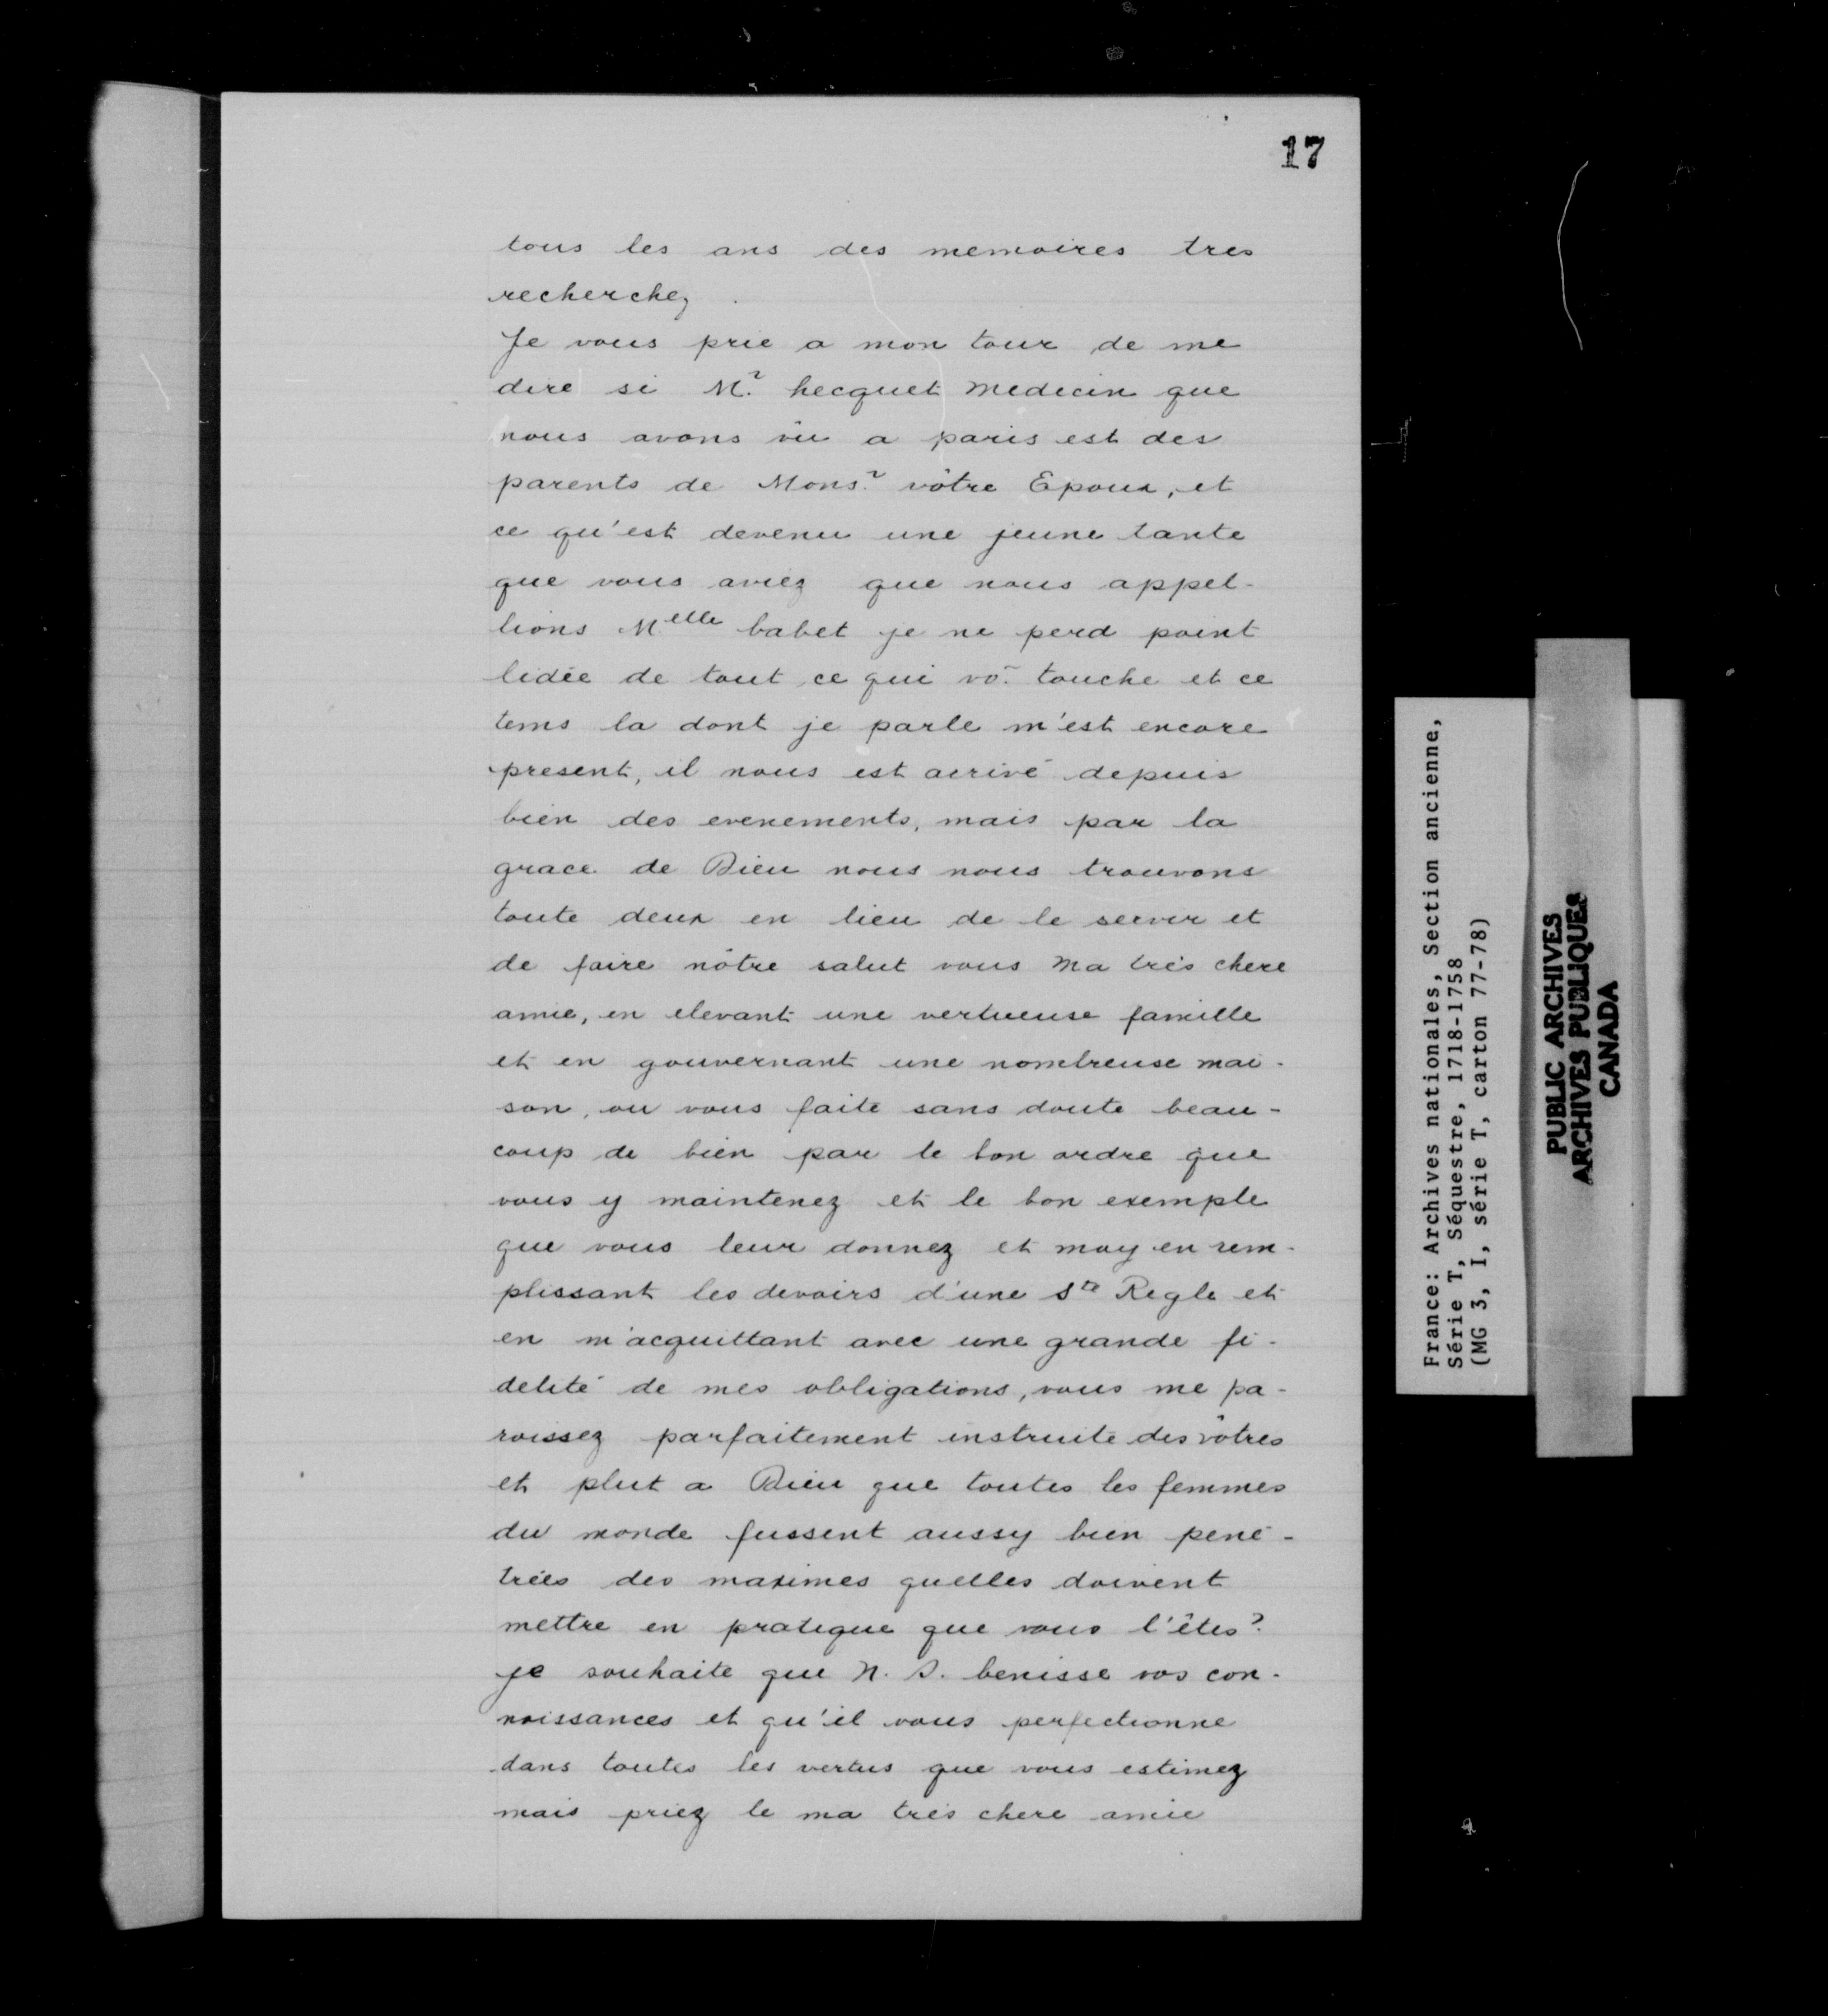 17
tous les ans des memoires tres
recherchez.
Je vous prie a mon tour de me
dire si M.r hecquet medecin que
nous avons vû a paris est des
parents de Mons.r vôtre Epoux, et
ce qu'est devenu une jeune tante
que vous aviez que nous appel-
lions Melle babet je ne perd point
lidée de tout ce qui vō. touche et ce
tems la dont je parle m'est encore
present, il nous est arrivé depuis
bien des evenements, mais par la
grace de Dieu nous nous trouvons
toute deux en lieu de le servir et
de faire nôtre salut vous ma très chere
amie, en elevant une vertueuse famille
et en gouvernant une nombreuse mai-
son, ou vous faite sans doute beau-
coup de bien par le bon ordre que
vous y maintenez et le bon exemple
que vous leur donnez et moy en rem-
plissant les devoirs d'une Ste Regle et
en m'acquittant avec une grande fi-
delité de mes obligations, vous me pa-
roissez parfaitement instruite des vôtres
et plut a Dieu que toutes les femmes
du monde fussent aussy bien pené-
trées des maximes quelles doivent
mettre en pratique que vous l'êtes?
je souhaite que N. S. benisse vos con-
noissances et qu'il vous perfectionne
dans toutes les vertus que vous estimez
mais priez le ma très chere amie
France: Archives nationales, Section ancienne,
Série T, Séquestre, 1718-1758
(MG 3, I, série T, carton 77-78)
PUBLIC ARCHIVES
ARCHIVES PUBLIQUES
CANADA